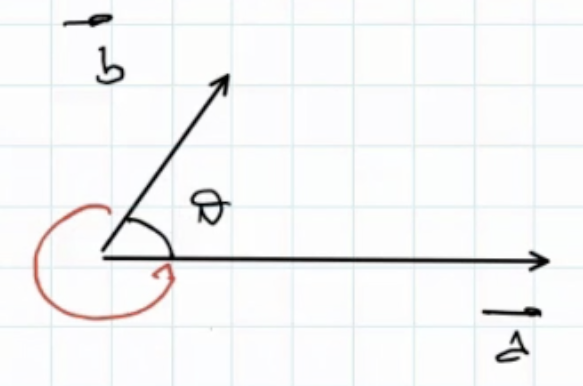 b
θ
a